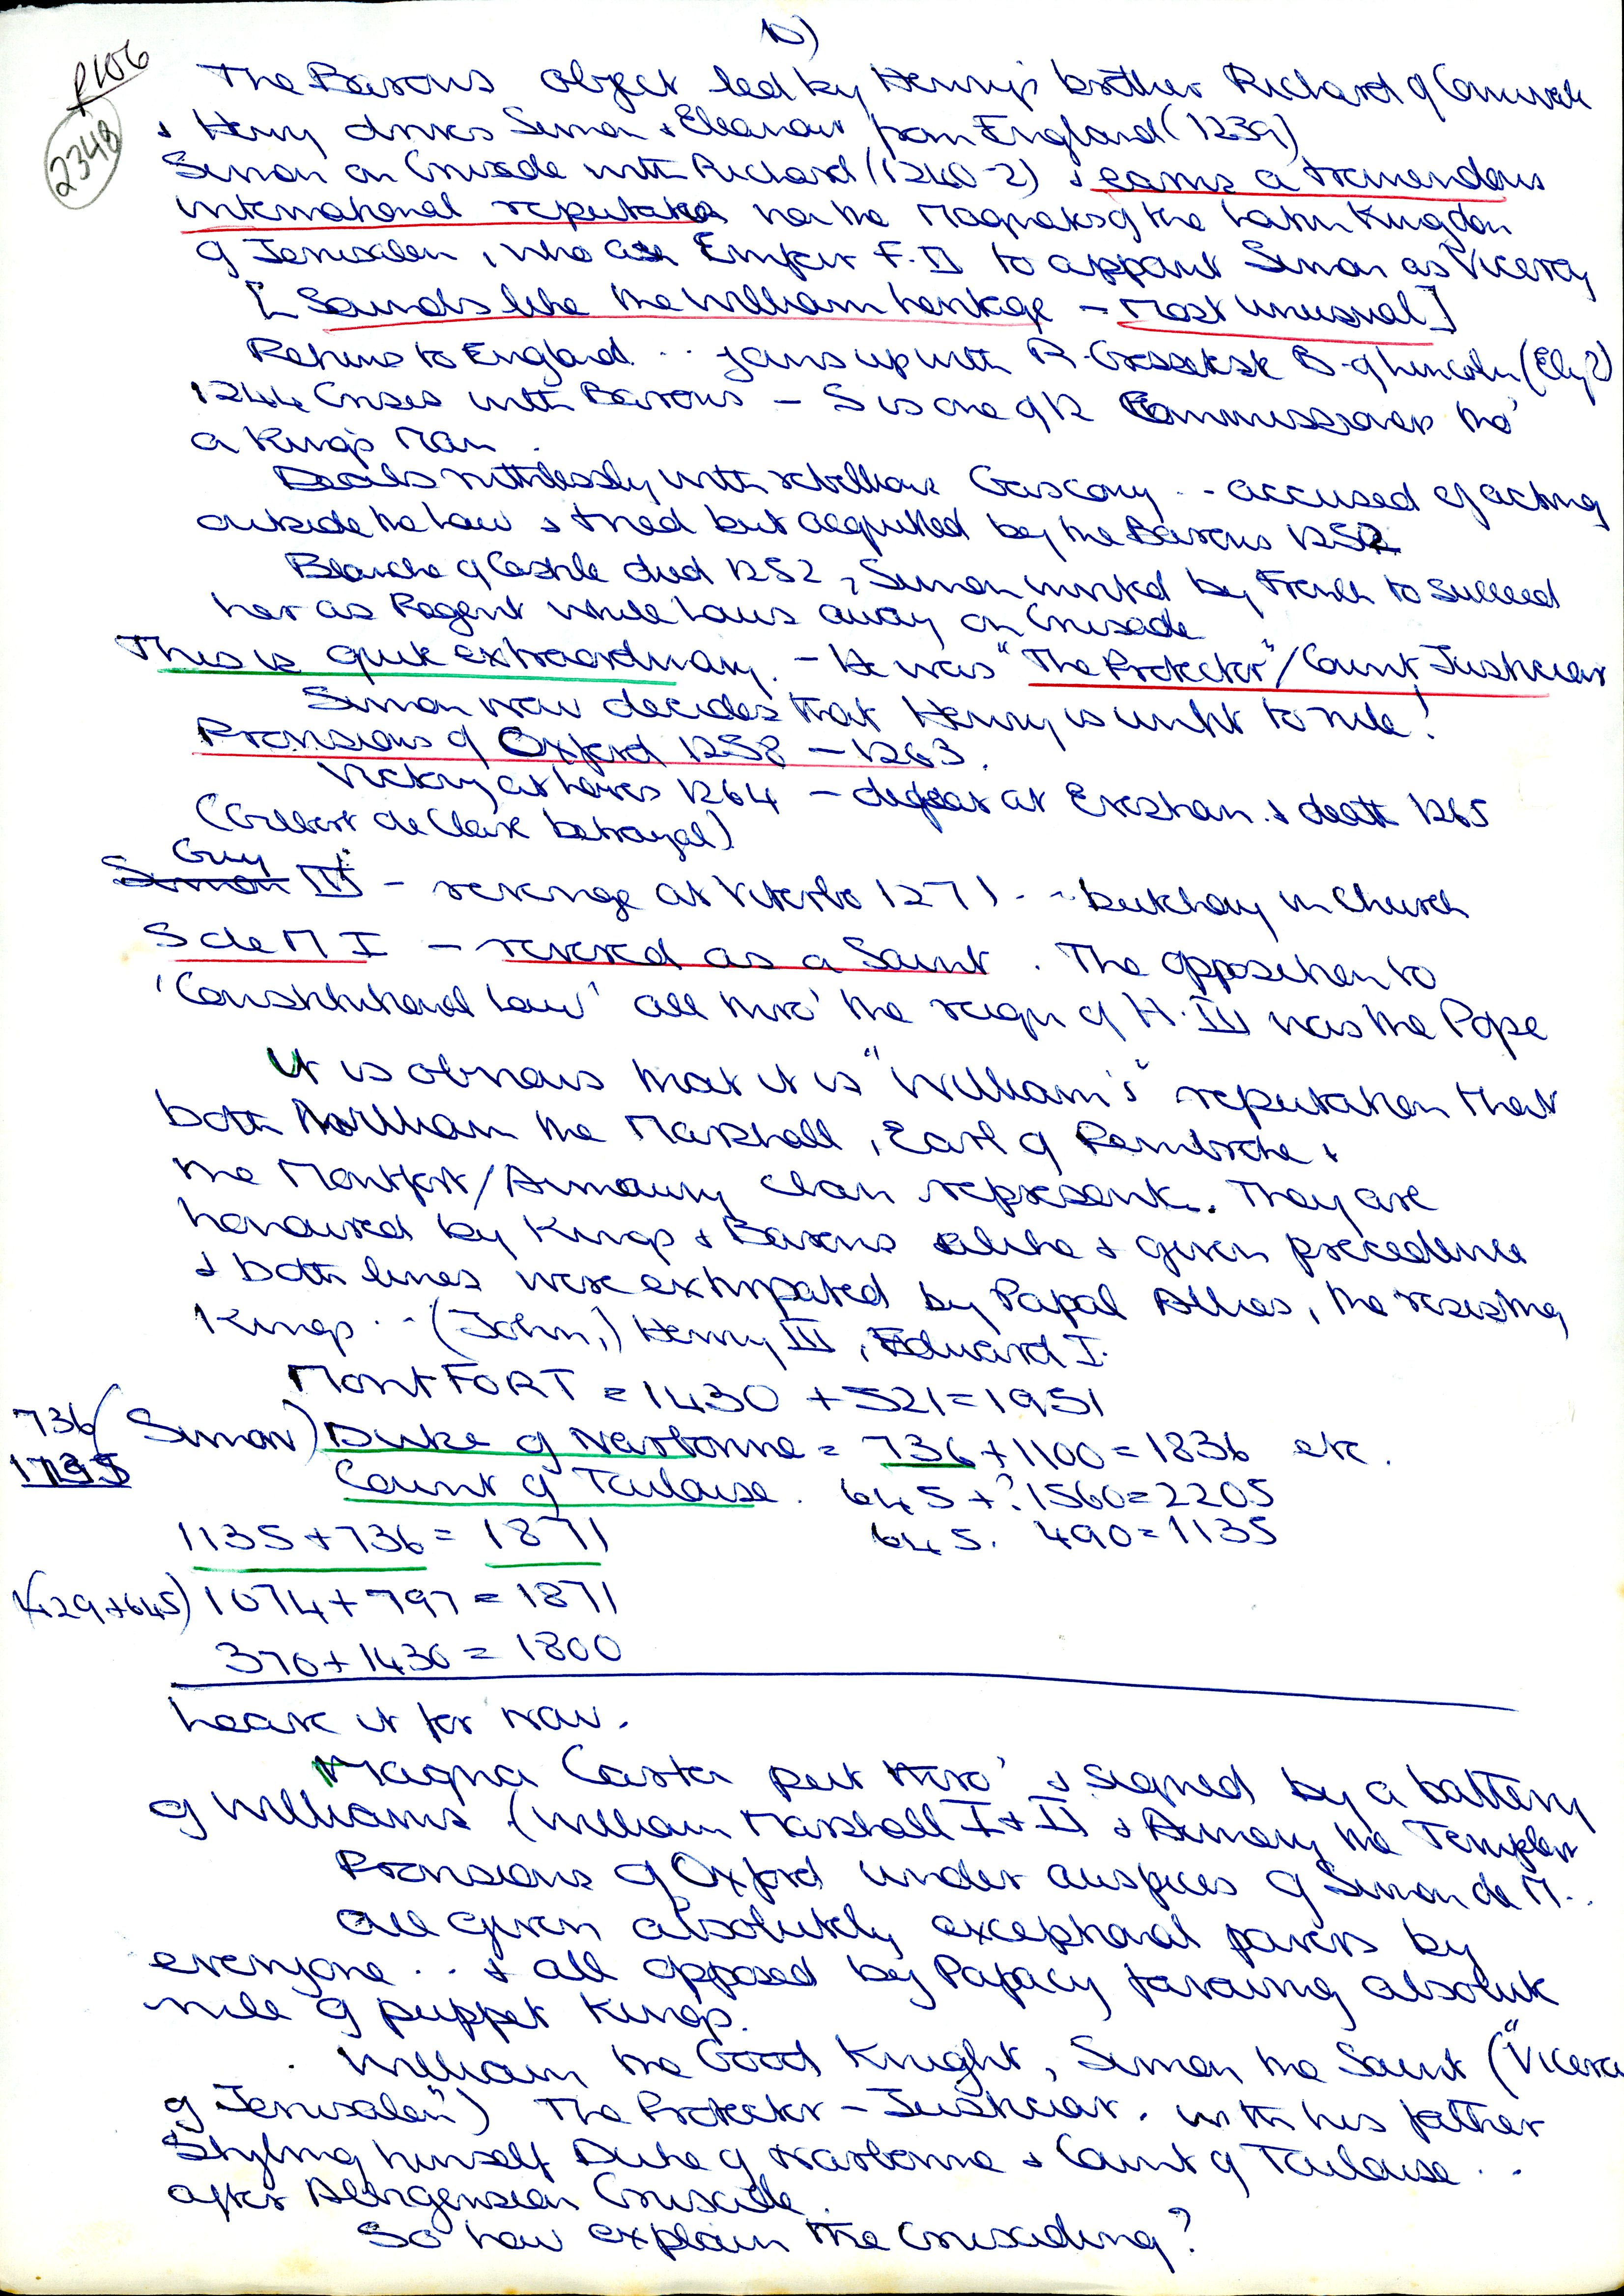 10)
R106
2348
The Barons object led by Henry's brother Richard of Cornwall
& Henry drives Simon & Eleanour from England (1239)
Simon on Crusade with Richard (1240-2) & earns a tremendous
international reputation the Magnates of the Latin Kingdom
of Jerusalem, who ask Emperor F.II to appoint Simon as Viceroy
[Sounds like the William heritage - Most Unusual]
Returns to England .. joins up with R. B. of Lincoln (Ely?)
1244 Crises with Barons - S is one of 12 Commissioners tho'
a King's Man.
Deals ruthlessly with rebellious Gascony .. accused of acting
outside the Law & tried but acquitted by the Barons 1252
Blanche of Castile died 1252, Simon invited by French to succeed
her as Regent while Louis away on Crusade
This is quite extraordinary. - He was "The Protector"/Count Justiciar
Simon now decides that Henry is unfit to rule!
Provisions of Oxford 1258 - 1263.
Victory at Lewes 1264 - defeat at Evesham. & death 1265
(Gilbert de Clare betrayal)
Guy
Simon III - revenge at Viterbo 1271 .. butchery in Church
S de M I - revered as a Saint. The opposition to
'Constitutional Law' all thro' the reign of H.III was the Pope
It is obvious that it is "William's" reputation that
both William the Marshall, Earl of Pembroke &
the Montfort/Amaury clan represent. They are
honoured by Kings & Barons alike & given precedence
& both lines were extirpated by Papal Allies, the resisting
Kings .. (John,) Henry III, Edward I.
MontFORT = 1430 + 521 = 1951
736 (Simon) Duke of Narbonne = 736 + 1100 = 1836 etc.
1135 Count of Toulouse. 645 + ? 1560 = 2205
1135 + 736 = 1871 645. 490 = 1135
(429+645) 1074 + 797 = 1871
370 + 1430 = 1800
Leave it for now.
Magna Carta put thro' & signed by a battery
of Williams (William Marshall I + II & Aimery the Templar
Provisions of Oxford under auspices of Simon de M..
All given absolutely exceptional powers by
everyone ... & all opposed by Papacy favouring absolute
rule of puppet Kings.
. William the Good Knight, Simon the Saint ("Vicero
of Jerusalem") The Protector - Justiciar. with his father
Styling himself Duke of Narbonne & Count of Toulouse ..
after Albigensian Crusade.
So how explain the Crusading?